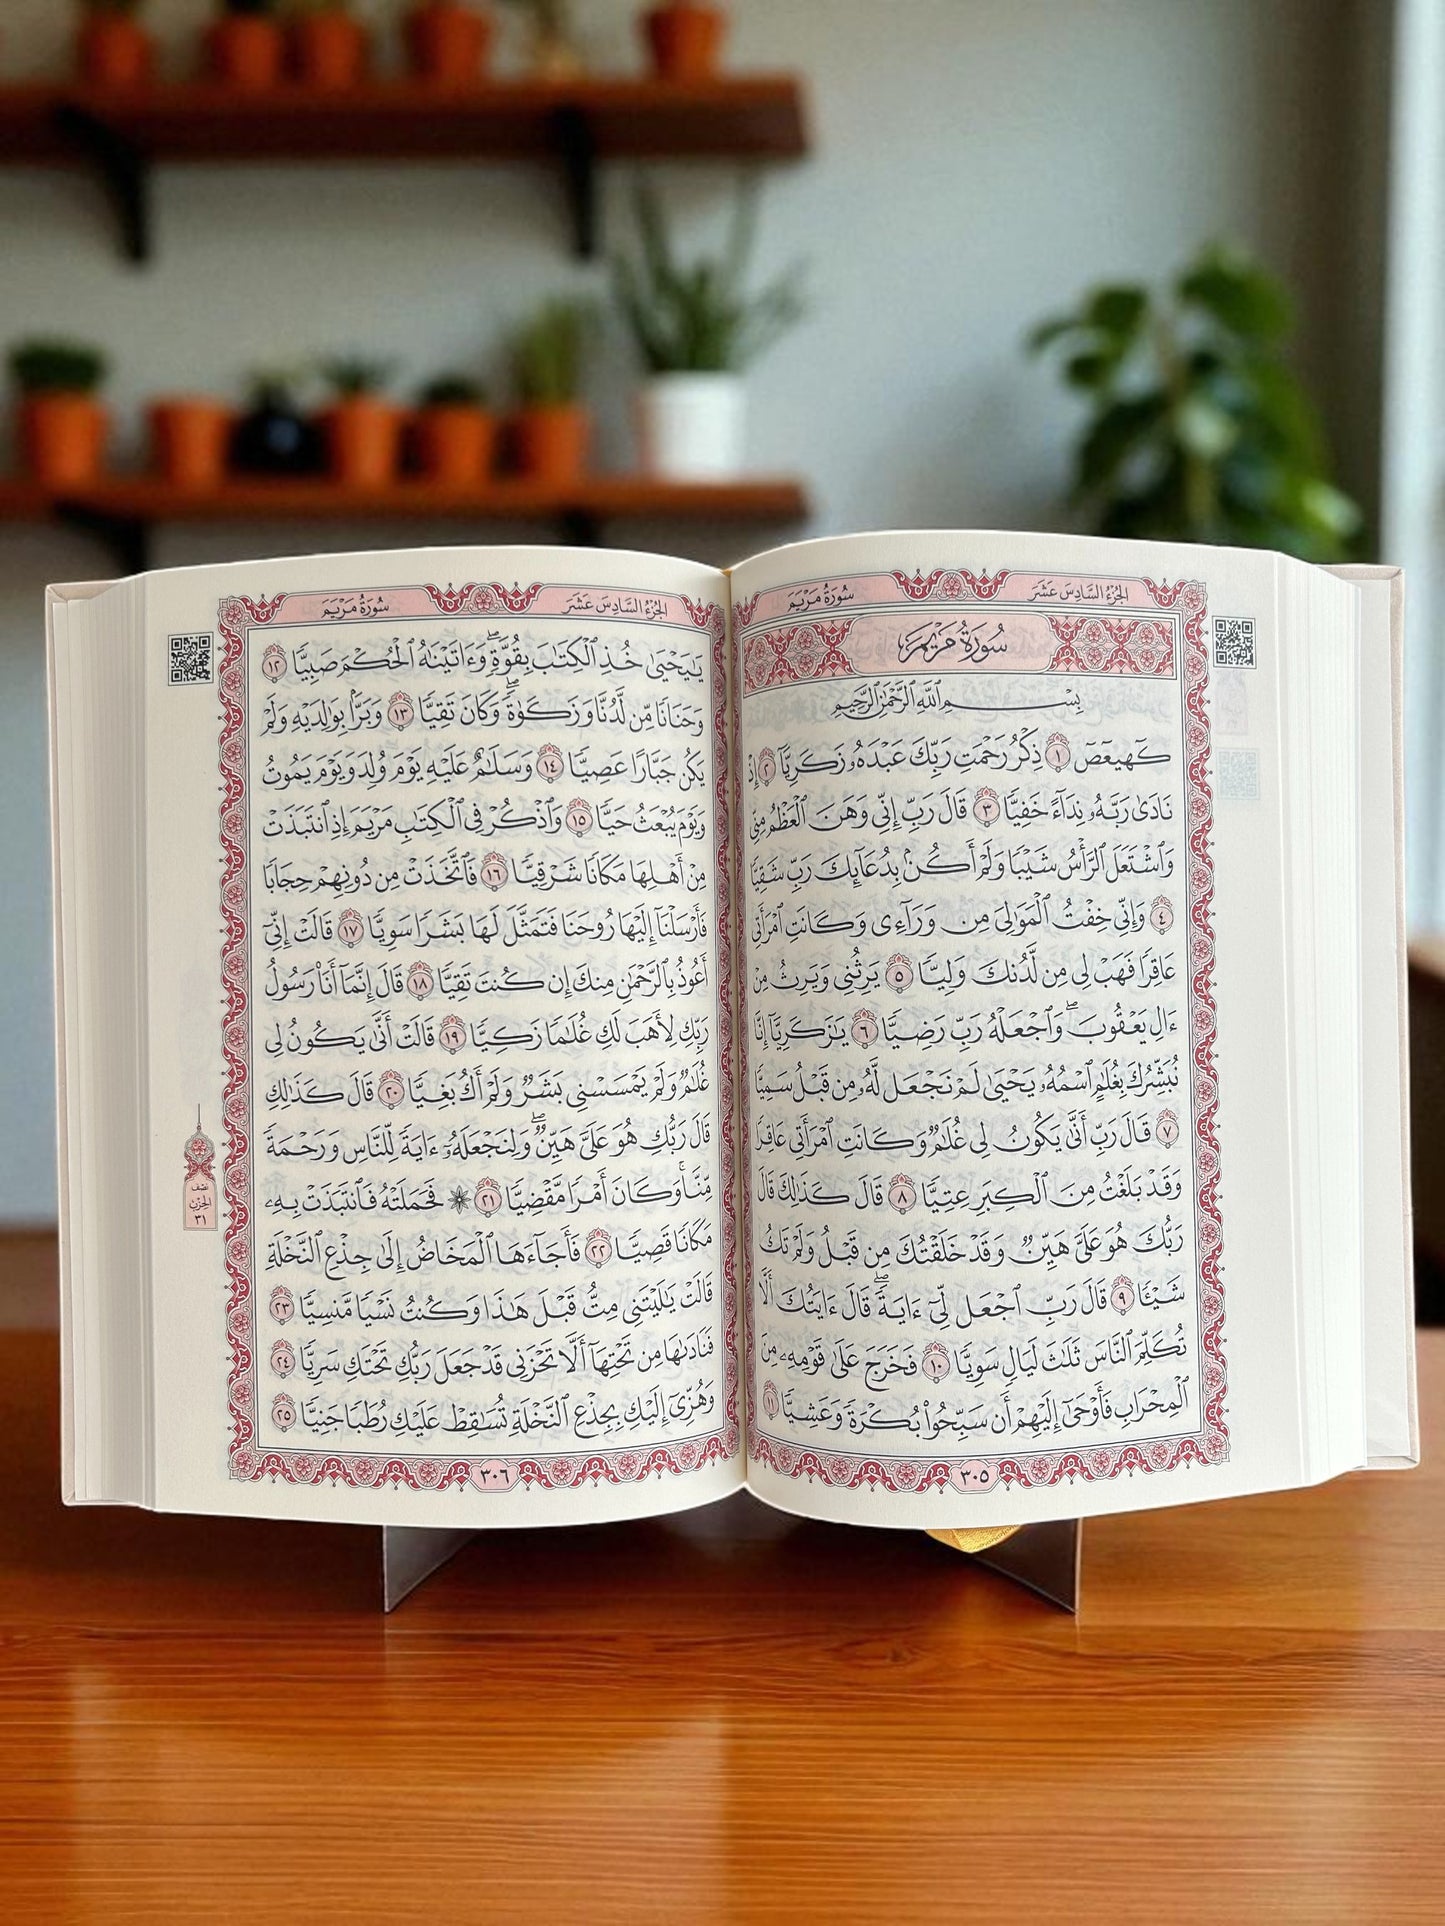 الجُزْءُ السَّادِسَ عَشَرَ
سُورَةُ مَرْيَمَ
سُورَةُ مَرْيَمَ
بِسْمِ ٱللَّهِ ٱلرَّحْمَٰنِ ٱلرَّحِيمِ
كٓهيعٓصٓ ١ ذِكْرُ رَحْمَتِ رَبِّكَ عَبْدَهُۥ زَكَرِيَّآ ٢ إِذْ
نَادَىٰ رَبَّهُۥ نِدَآءً خَفِيًّا ٣ قَالَ رَبِّ إِنِّي وَهَنَ ٱلْعَظْمُ مِنِّي
وَٱشْتَعَلَ ٱلرَّأْسُ شَيْبًا وَلَمْ أَكُنۢ بِدُعَآئِكَ رَبِّ شَقِيًّا
٤ وَإِنِّي خِفْتُ ٱلْمَوَٰلِيَ مِن وَرَآءِي وَكَانَتِ ٱمْرَأَتِي
عَاقِرًا فَهَبْ لِي مِن لَّدُنكَ وَلِيًّا ٥ يَرِثُنِي وَيَرِثُ مِنْ
ءَالِ يَعْقُوبَۖ وَٱجْعَلْهُ رَبِّ رَضِيًّا ٦ يَٰزَكَرِيَّآ إِنَّا
نُبَشِّرُكَ بِغُلَٰمٍ ٱسْمُهُۥ يَحْيَىٰ لَمْ نَجْعَل لَّهُۥ مِن قَبْلُ سَمِيًّا
٧ قَالَ رَبِّ أَنَّىٰ يَكُونُ لِي غُلَٰمٌ وَكَانَتِ ٱمْرَأَتِي عَاقِرًا
وَقَدْ بَلَغْتُ مِنَ ٱلْكِبَرِ عِتِيًّا ٨ قَالَ كَذَٰلِكَ قَالَ
رَبُّكَ هُوَ عَلَيَّ هَيِّنٌ وَقَدْ خَلَقْتُكَ مِن قَبْلُ وَلَمْ تَكُ
شَيْـًٔا ٩ قَالَ رَبِّ ٱجْعَل لِّيٓ ءَايَةًۖ قَالَ ءَايَتُكَ أَلَّا
تُكَلِّمَ ٱلنَّاسَ ثَلَٰثَ لَيَالٍ سَوِيًّا ١٠ فَخَرَجَ عَلَىٰ قَوْمِهِۦ مِنَ
ٱلْمِحْرَابِ فَأَوْحَىٰٓ إِلَيْهِمْ أَن سَبِّحُوا۟ بُكْرَةً وَعَشِيًّا ١١
٣٠٥
الجُزْءُ السَّادِسَ عَشَرَ
سُورَةُ مَرْيَمَ
يَٰيَحْيَىٰ خُذِ ٱلْكِتَٰبَ بِقُوَّةٍۖ وَءَاتَيْنَٰهُ ٱلْحُكْمَ صَبِيًّا ١٢
وَحَنَانًا مِّن لَّدُنَّا وَزَكَوٰةًۖ وَكَانَ تَقِيًّا ١٣ وَبَرًّۢا بِوَٰلِدَيْهِ وَلَمْ
يَكُن جَبَّارًا عَصِيًّا ١٤ وَسَلَٰمٌ عَلَيْهِ يَوْمَ وُلِدَ وَيَوْمَ يَمُوتُ
وَيَوْمَ يُبْعَثُ حَيًّا ١٥ وَٱذْكُرْ فِي ٱلْكِتَٰبِ مَرْيَمَ إِذِ ٱنتَبَذَتْ
مِنْ أَهْلِهَا مَكَانًا شَرْقِيًّا ١٦ فَٱتَّخَذَتْ مِن دُونِهِمْ حِجَابًا
فَأَرْسَلْنَآ إِلَيْهَا رُوحَنَا فَتَمَثَّلَ لَهَا بَشَرًا سَوِيًّا ١٧ قَالَتْ إِنِّيٓ
أَعُوذُ بِٱلرَّحْمَٰنِ مِنكَ إِن كُنتَ تَقِيًّا ١٨ قَالَ إِنَّمَآ أَنَا۠ رَسُولُ
رَبِّكِ لِأَهَبَ لَكِ غُلَٰمًا زَكِيًّا ١٩ قَالَتْ أَنَّىٰ يَكُونُ لِي
غُلَٰمٌ وَلَمْ يَمْسَسْنِي بَشَرٌ وَلَمْ أَكُ بَغِيًّا ٢٠ قَالَ كَذَٰلِكِ
قَالَ رَبُّكِ هُوَ عَلَيَّ هَيِّنٌۖ وَلِنَجْعَلَهُۥٓ ءَايَةً لِّلنَّاسِ وَرَحْمَةً
مِّنَّاۚ وَكَانَ أَمْرًا مَّقْضِيًّا ٢١ ۞ فَحَمَلَتْهُ فَٱنتَبَذَتْ بِهِۦ
مَكَانًا قَصِيًّا ٢٢ فَأَجَآءَهَا ٱلْمَخَاضُ إِلَىٰ جِذْعِ ٱلنَّخْلَةِ
قَالَتْ يَٰلَيْتَنِي مِتُّ قَبْلَ هَٰذَا وَكُنتُ نَسْيًا مَّنسِيًّا ٢٣
فَنَادَىٰهَا مِن تَحْتِهَآ أَلَّا تَحْزَنِي قَدْ جَعَلَ رَبُّكِ تَحْتَكِ سَرِيًّا ٢٤
وَهُزِّيٓ إِلَيْكِ بِجِذْعِ ٱلنَّخْلَةِ تُسَٰقِطْ عَلَيْكِ رُطَبًا جَنِيًّا ٢٥
نصف
الحزب
٣١
٣٠٦